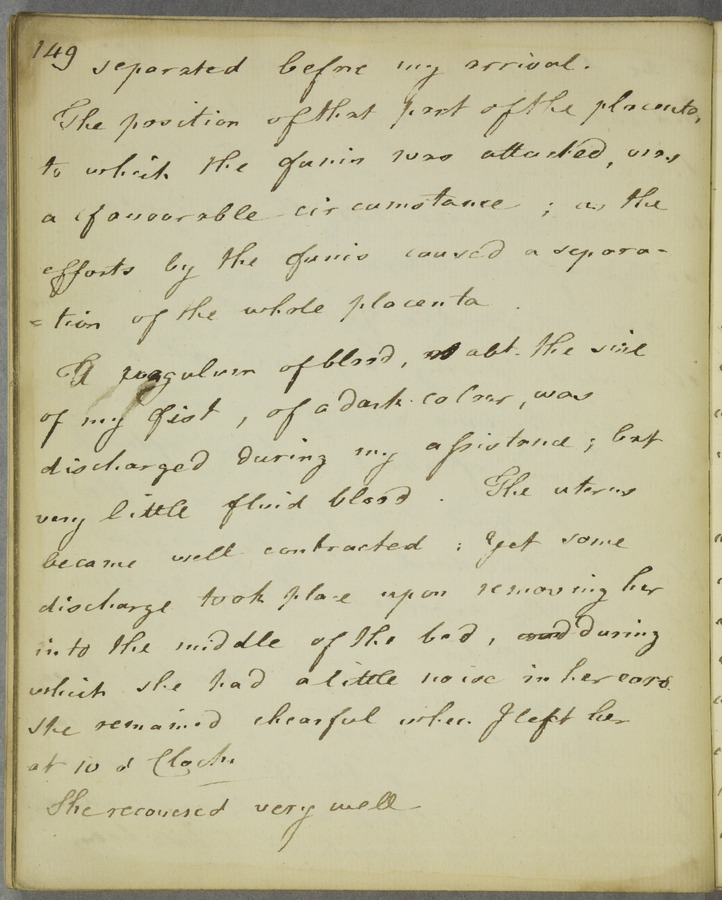 149
separated before my arrival.
The position of that part of the placenta,
to which the funis was attached, was
a favourable circumstance ; as the
efforts by the funis caused a separa-
=tion of the whole placenta .
A coagulum of blood, abt. the size
of my fist , of a dark colour, was
discharged during my assistance ; but
very little fluid blood . The uterus
became well contracted ; yet some
discharge took place upon removing her
into the middle of the bed , and during
which she had a little noise in her ears.
She remained chearful when I left her
at 10 o' Clock.
She recovered very well